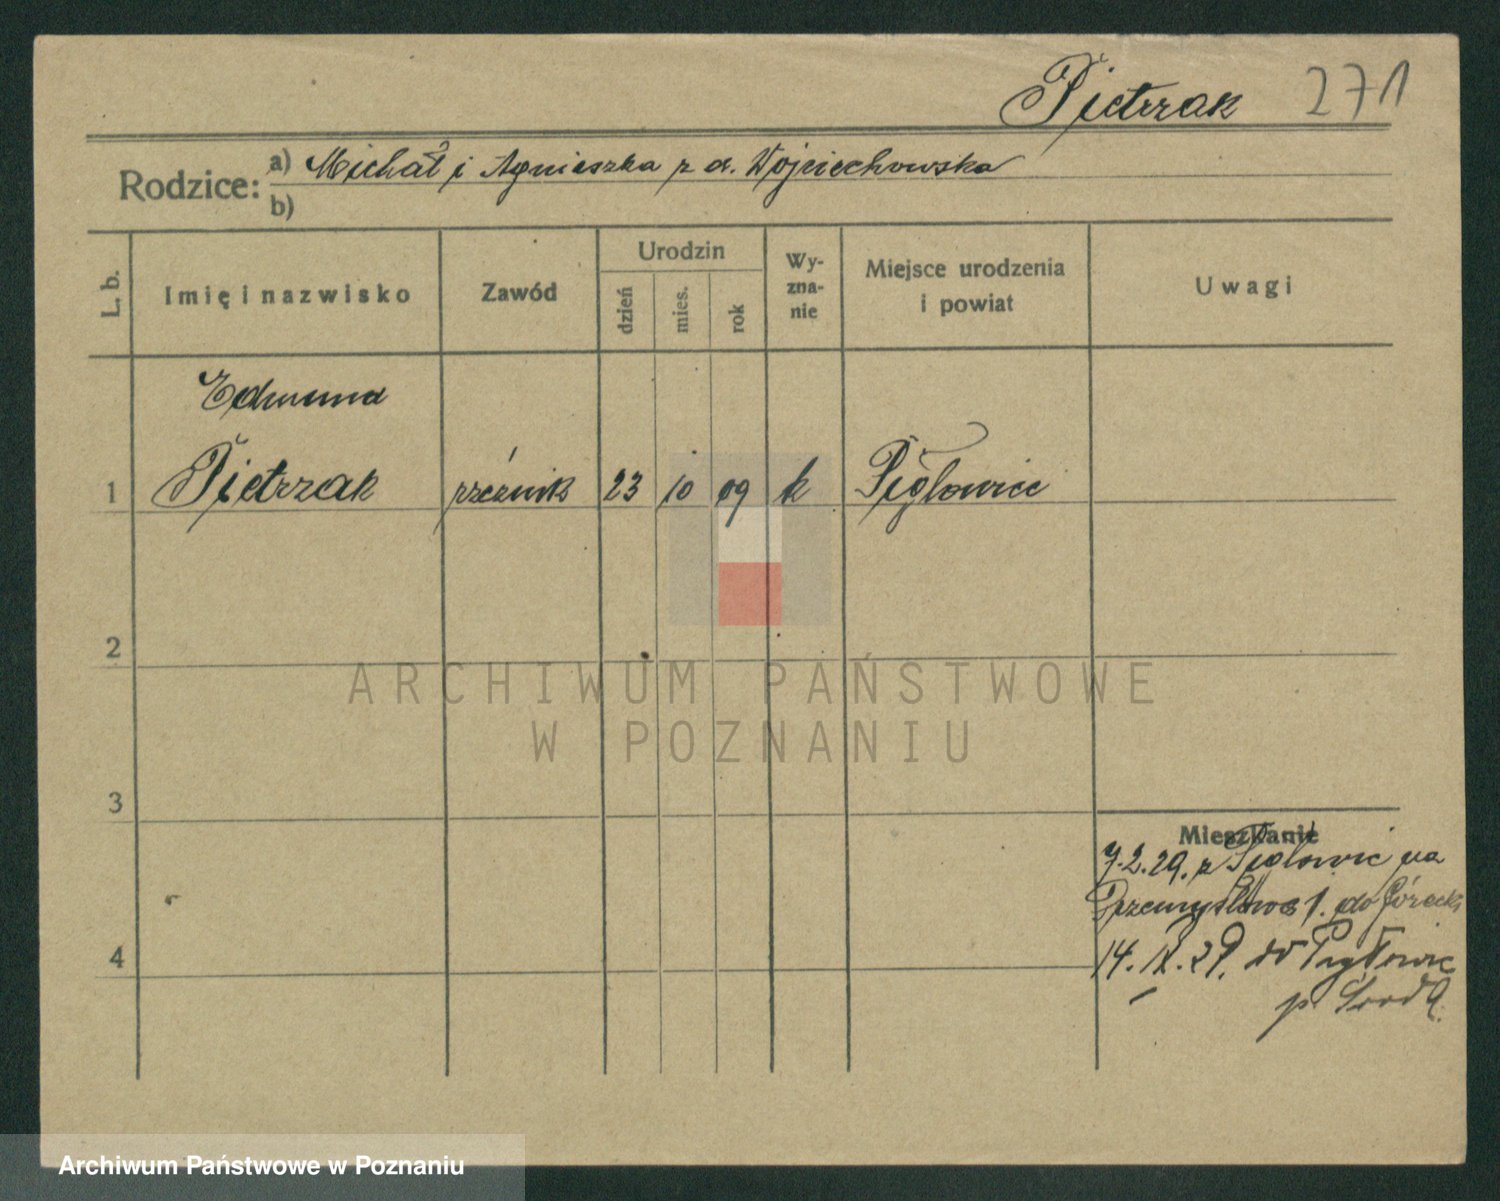 Pietrzak 271
Rodzice: a) Michał i Agnieszka z d. Wojciechowska
b)
L. b. Imię i nazwisko Zawód Urodzin dzień mies. rok Wy-zna-nie Miejsce urodzenia i powiat Uwagi
Edmund
1 Pietrzak rzeźnik 23 10 09 k Pigłowice
2
ARCHIWUM PAŃSTWOWE
W POZNANIU
3
Mieszkanie
7.2.29. z Piglowic na
Przemysłowa 1. do Górecki
4
14. IX. 29. do Pigłowic
p. Środa.
Archiwum Państwowe w Poznaniu